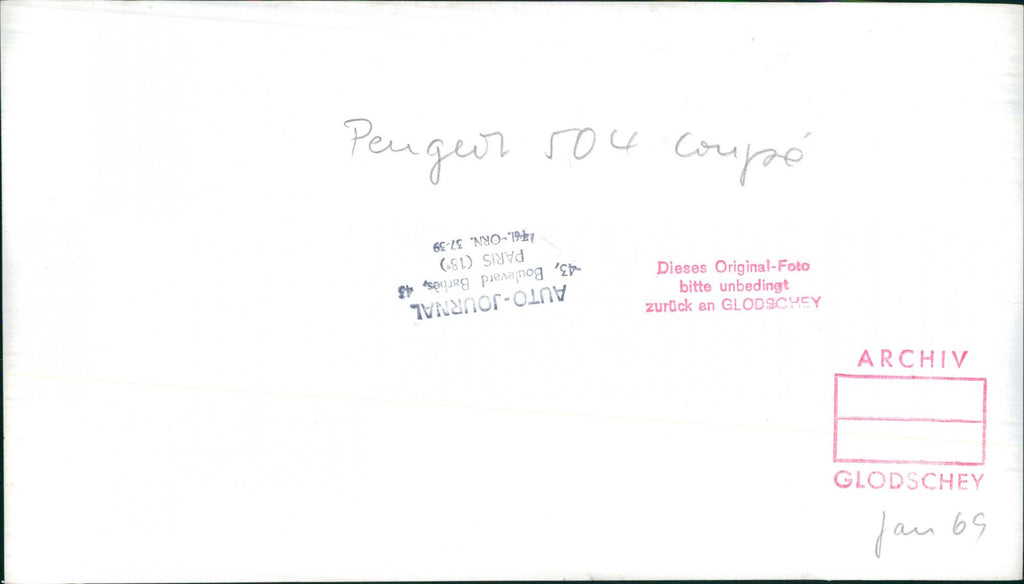 Peugeot 504 Coupé
AUTO-JOURNAL
43, Boulevard Barbès, 43
PARIS (18e)
ORN. 37-39
Dieses Original-Foto
bitte unbedingt
zurück an GLODSCHEY
ARCHIV
GLODSCHEY
Jan 69